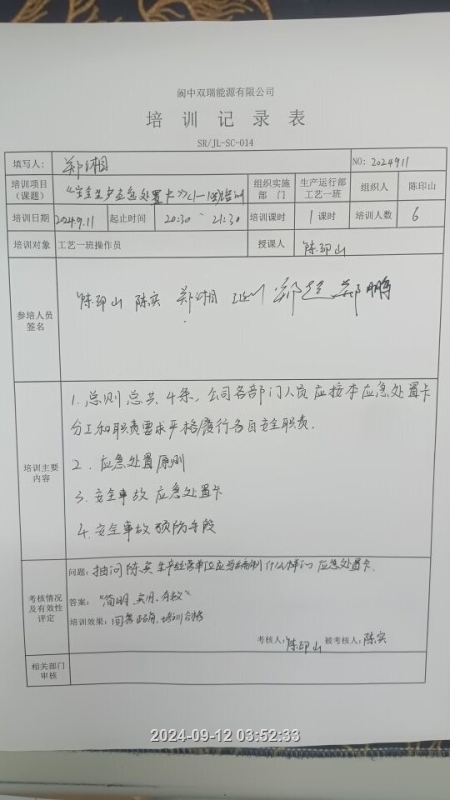 阆中双瑞能源有限公司
培训记录表
SR/JL-SC-014
填写人： 郑湘 NO: 2024911
培训项目（课题） 《安全生产应急处置卡》 组织实施部门 生产运行部工艺一班 组织人 陈印山
培训日期 2024.9.11 起止时间 20:30 ~ 21:30 培训课时 1课时 培训人数 6
培训对象 工艺一班操作员 授课人 陈印山
参培人员签名 陈印山 陈实 郑湘 郑超
培训主要内容
1. 总则总共4条，公司各部门人员应按本应急处置卡
分工和职责要求严格履行各自安全职责.
2. 应急处置原则
3. 安全事故应急处置卡
4. 安全事故预防手段
考核情况及有效性评定
问题：抽问陈实生产经营单位应当编制什么样的应急处置卡.
答案："简明、实用、有效"
培训效果：回答正确，培训合格
考核人：陈印山 被考核人：陈实
相关部门审核
2024-09-12 03:52:33